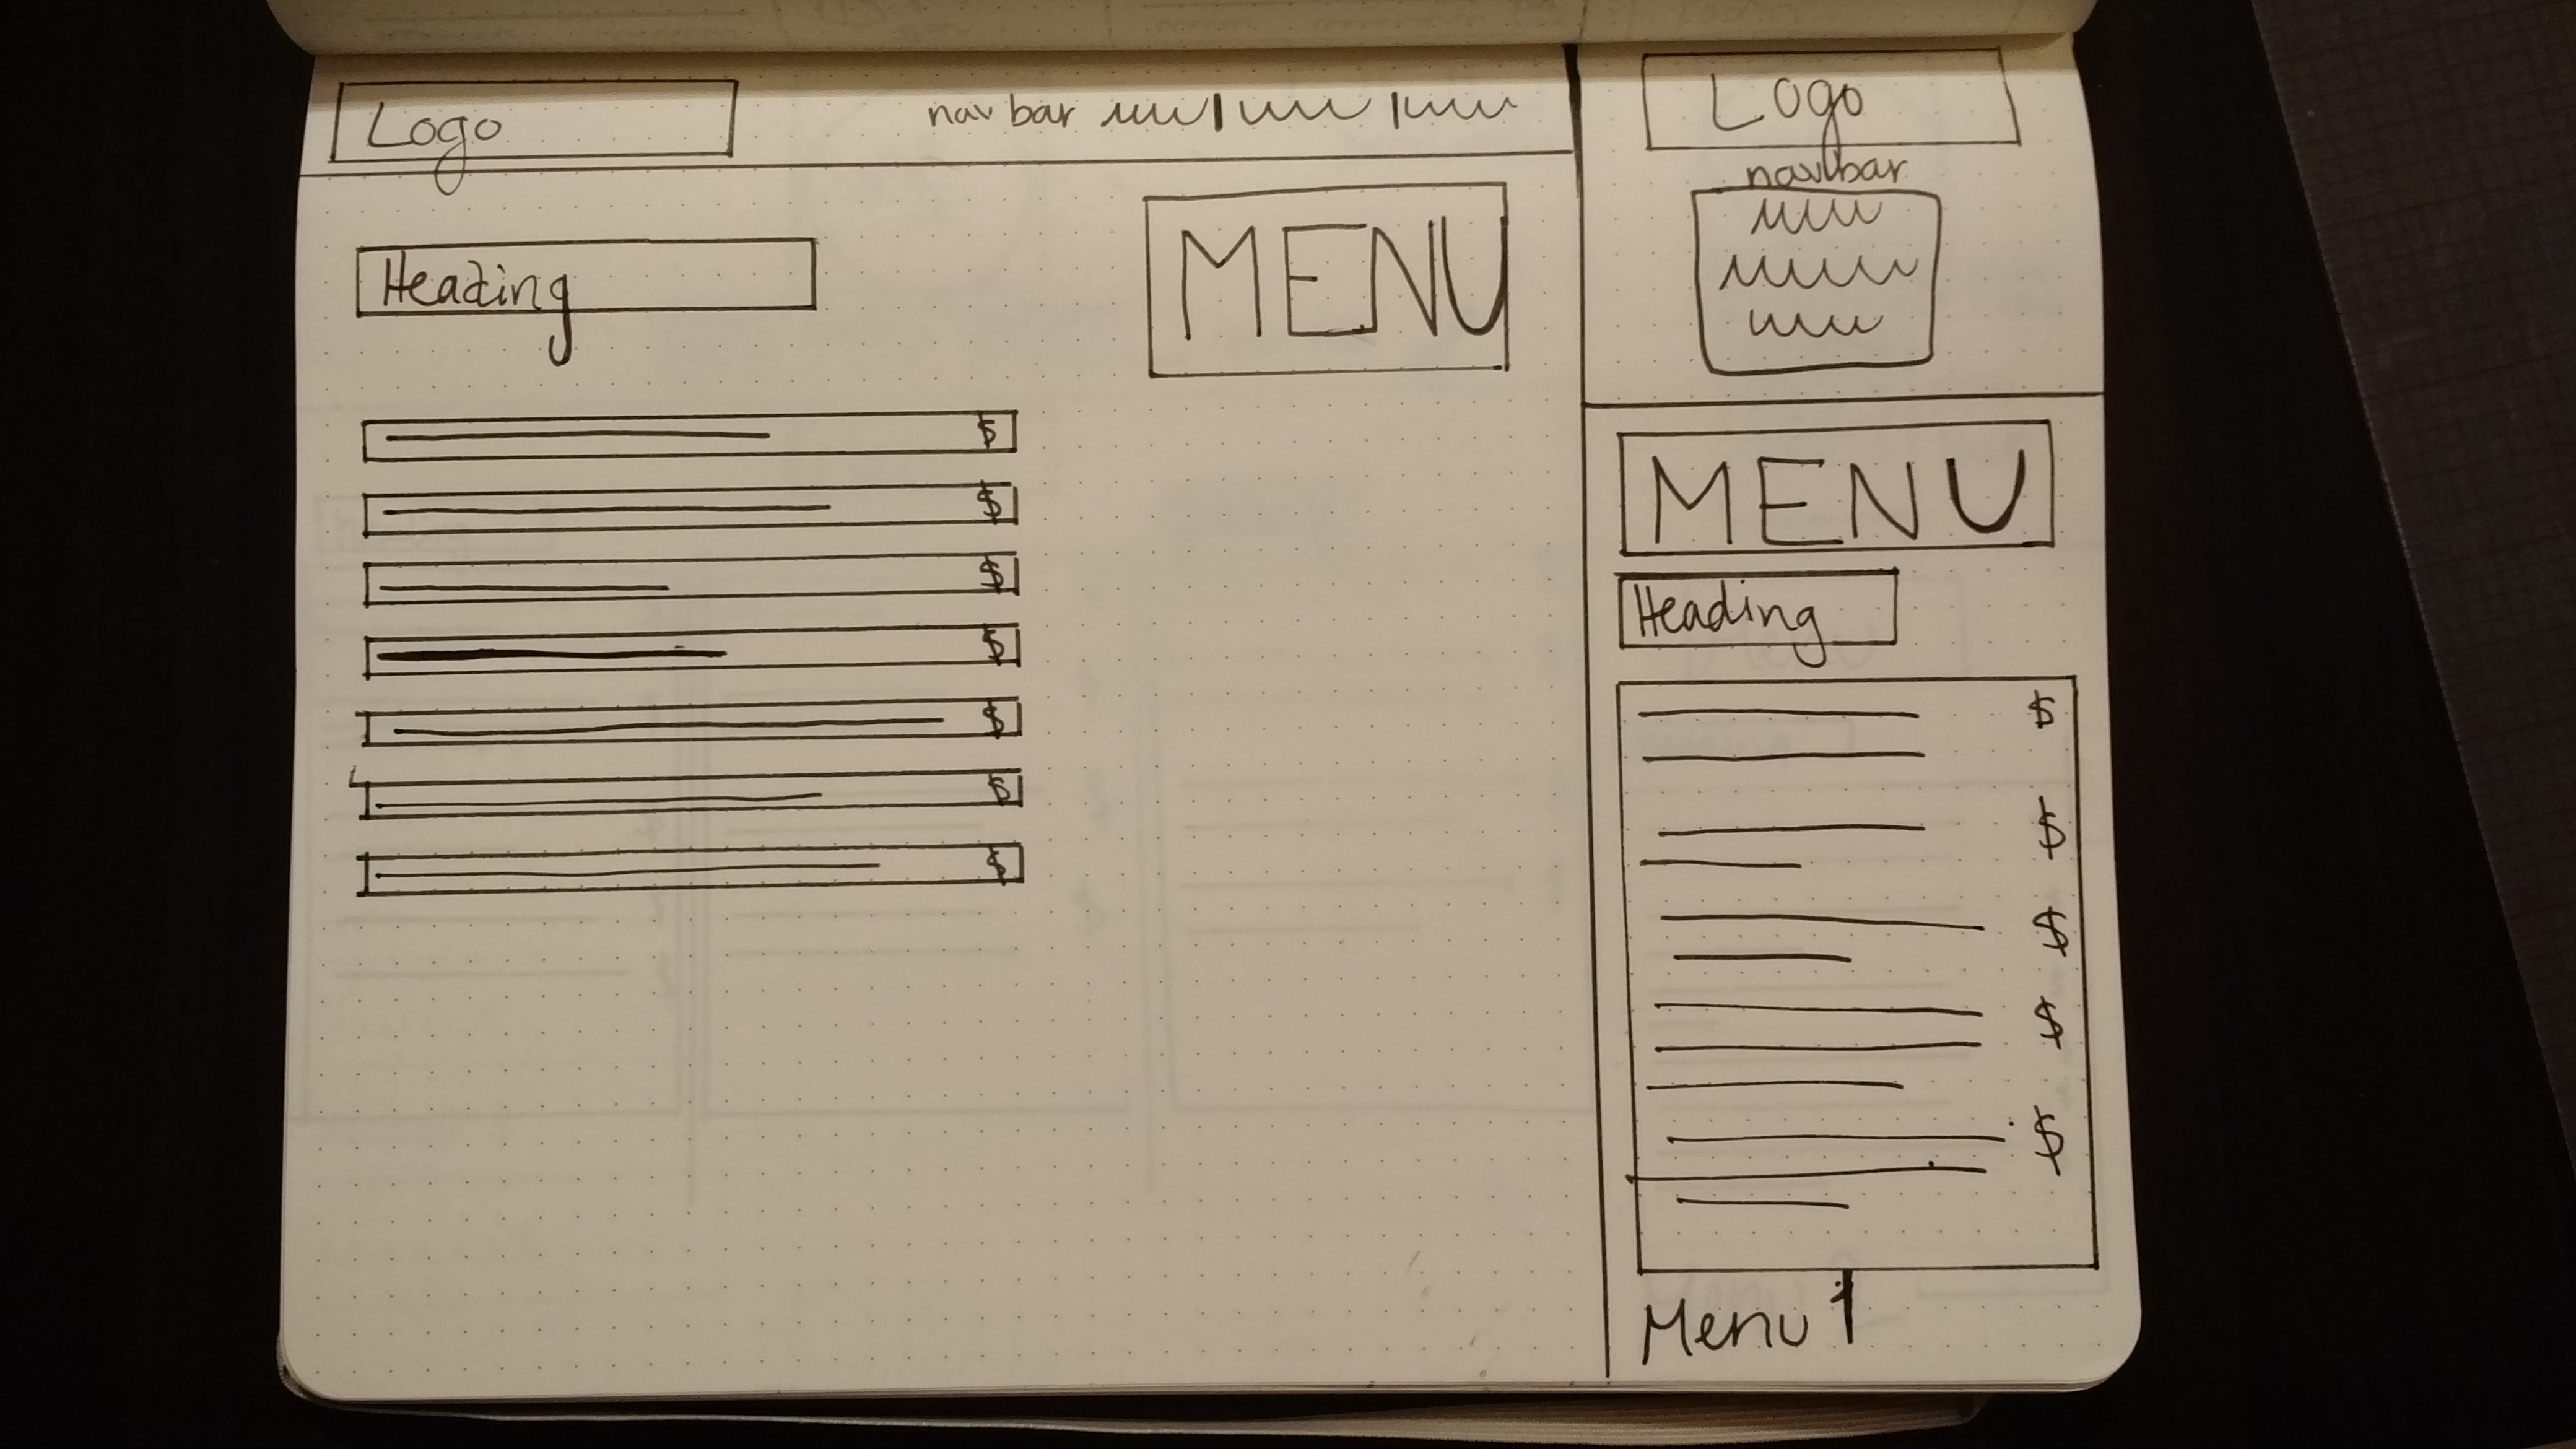 Logo
nav bar
Heading
MENU
$
$
$
$
$
$
$
Logo
navbar
MENU
Heading
$
$
$
$
$
Menu 1